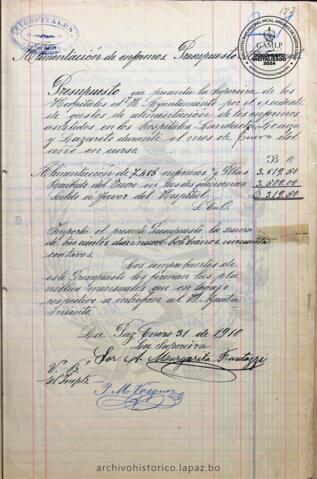 HOSPITALES
127
GAMLP
DOCUMENTO
DIGITALIZADO
2024
Alimentación de enfermos. Presupuesto
Presupuesto que presenta la Superiora de los
Hospitales al H. Ayuntamiento por el
de gastos de alimentación de los enfermos
asistidos en los Hospitales Landaeta, Loaiza
y Lazareto durante el mes de Enero del
año en curso.
B C
Alimentación de 7.485 enfermos
3.819.50
Recibido del Tesoro en
3.500.00
Saldo a favor del Hospital
$ 319.50
S. E. u O.
Importa el presente Presupuesto la suma
de trescientos diez i nueve bolivianos cincuenta
centavos.
Los comprobantes de
este Presupuesto los forman las pla
nillas mensuales que en legajo
respectivo se entregan al H. Ayunta
miento.
La Paz, Enero 31 de 1910
La Superiora
Sor A. Margarita
V.º B.º
P. M. Vasquez
archivohistorico.lapaz.bo